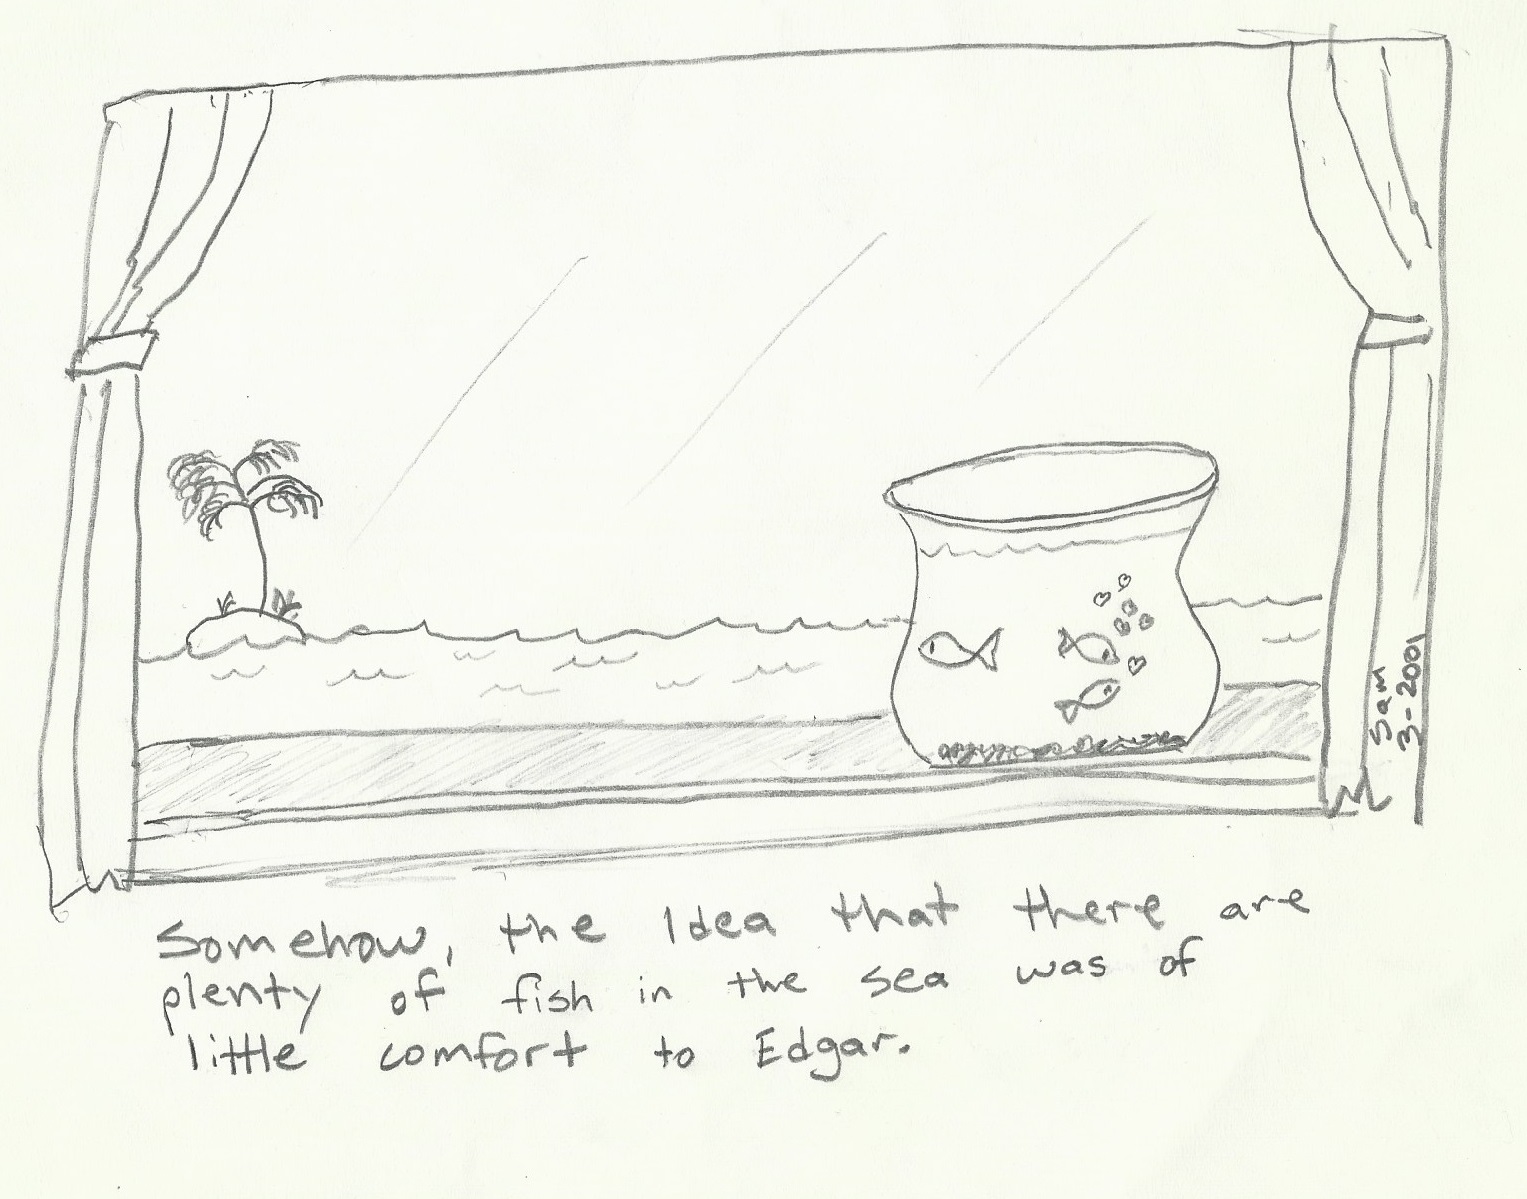 Sam
3-2001
Somehow, the Idea that there are
plenty of fish in the sea was of
little comfort to Edgar.